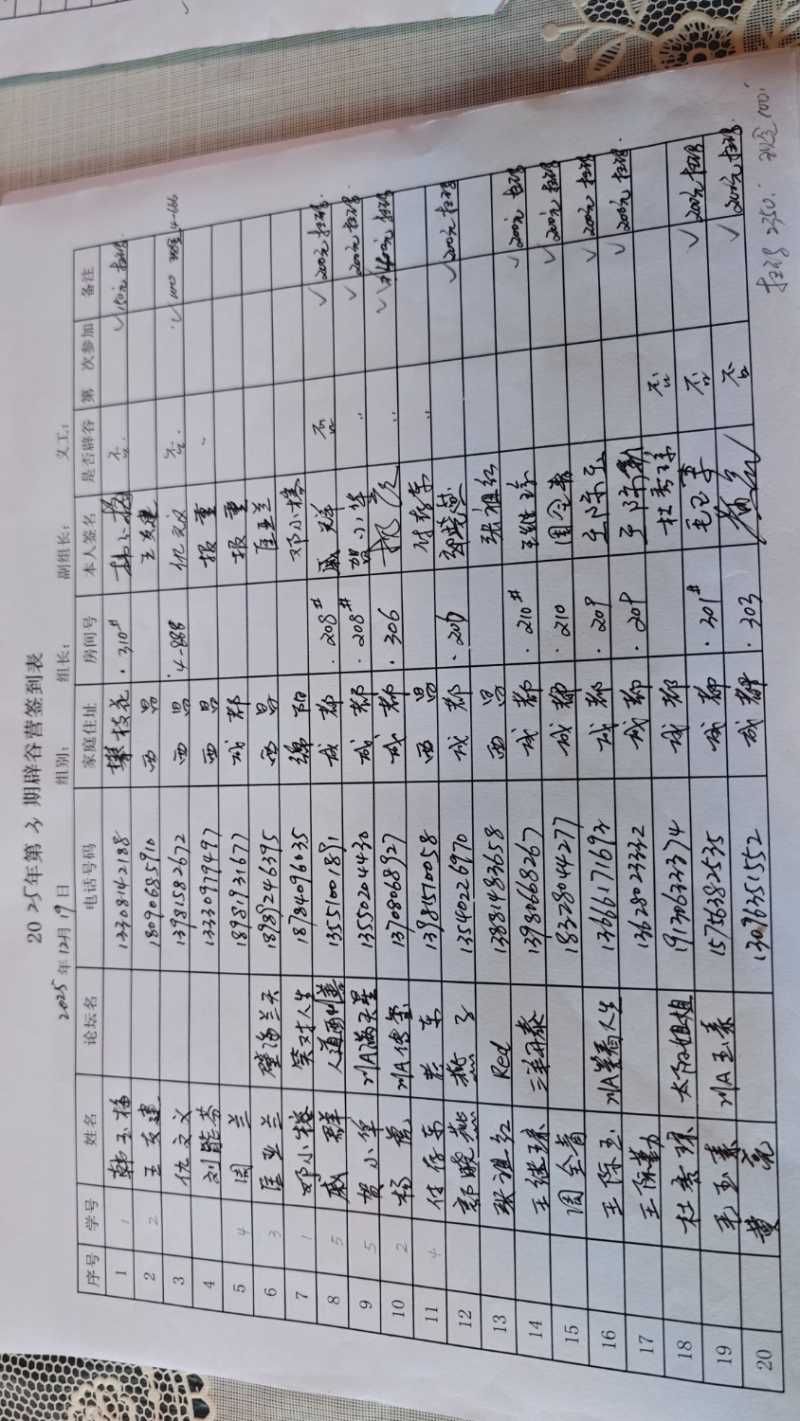 2025年第3期辟谷营签到表
2025年12月19日 组别: 组长: 副组长: 义工:
序号 学号 姓名 论坛名 电话号码 家庭住址 房间号 本人签名 是否辟谷 第 次参加 备注
1 1 韩玉梅 13308142188 攀枝花 ·310# 否 ✓150元扫码
2 2 王友建 18090685910 西昌 王友建
3 仇文义 13981582672 西昌 仇文义 否 ✓1000 现金
4 刘能芬 13330919497 西昌 报重
5 4 周兰 18981931677 成都 报重
6 3 匡亚兰 18989246395 西昌 匡亚兰
7 1 邓小榕 笑对人生 18784096035 绵阳 邓小榕
8 5 戚群 13551001891 成都 ·208# 戚群 否 ✓200元扫码
9 5 贺小华 川A满天星 13550204430 成都 ·208# 贺小华 〃 ✓200元扫码
10 2 杨 13708068927 成都 ·306 〃 ✓
11 4 付存东 13981510058 西昌 付存东 〃
12 郭晓燕 燕子 13540226970 成都 ·207 郭晓燕 ✓200元扫码
13 张祖红 Red 13881483658 西昌 张祖红
14 王继琼 三羊开泰 13980668267 成都 ·210# 王继琼 ✓200元扫码
15 周全青 18378044277 成都 ·210 周全青 ✓200元扫码
16 王陈玉 川A笑看人生 13666171693 成都 ·209 王陈玉 ✓200元扫码
17 13628023332 成都 ·209 ✓200元扫码
18 杜秀琼 太阳姐姐 19130632374 成都 杜秀琼 否
19 毛玉春 15756382535 成都 ·301# 否 ✓200元扫码
20 黄亮 13096351552 成都 ·303 黄亮 否 ✓200元扫码
扫码 2350; 现金1000;